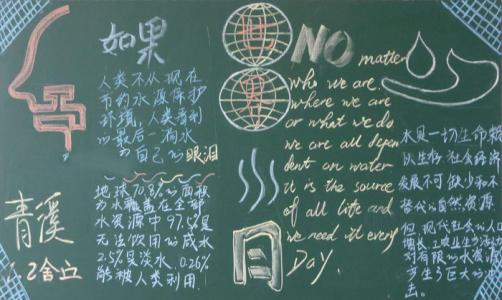 如果
人类不从现在
节约水源保护
环境,人类看到
的最后一滴水
为自己的眼泪
青溪
6.2舍丘
地球70.8%的面积
为水覆盖在全部
水资源中97.5%是
无法饮用的咸水
2.5%是淡水 0.26%
能被人类利用.
世
界
日
NO matter
who we are.
where we are
or what we do
we are all depen
dent on water
it is the source
of all life and
we need it every
DaY.
水是一切生命赖
以生存 社会经济
发展不可缺少和不可
替代的自然资源
但,现代社会的人口
增长.工农业生
对有限的水资源
生了巨大的冲
击。